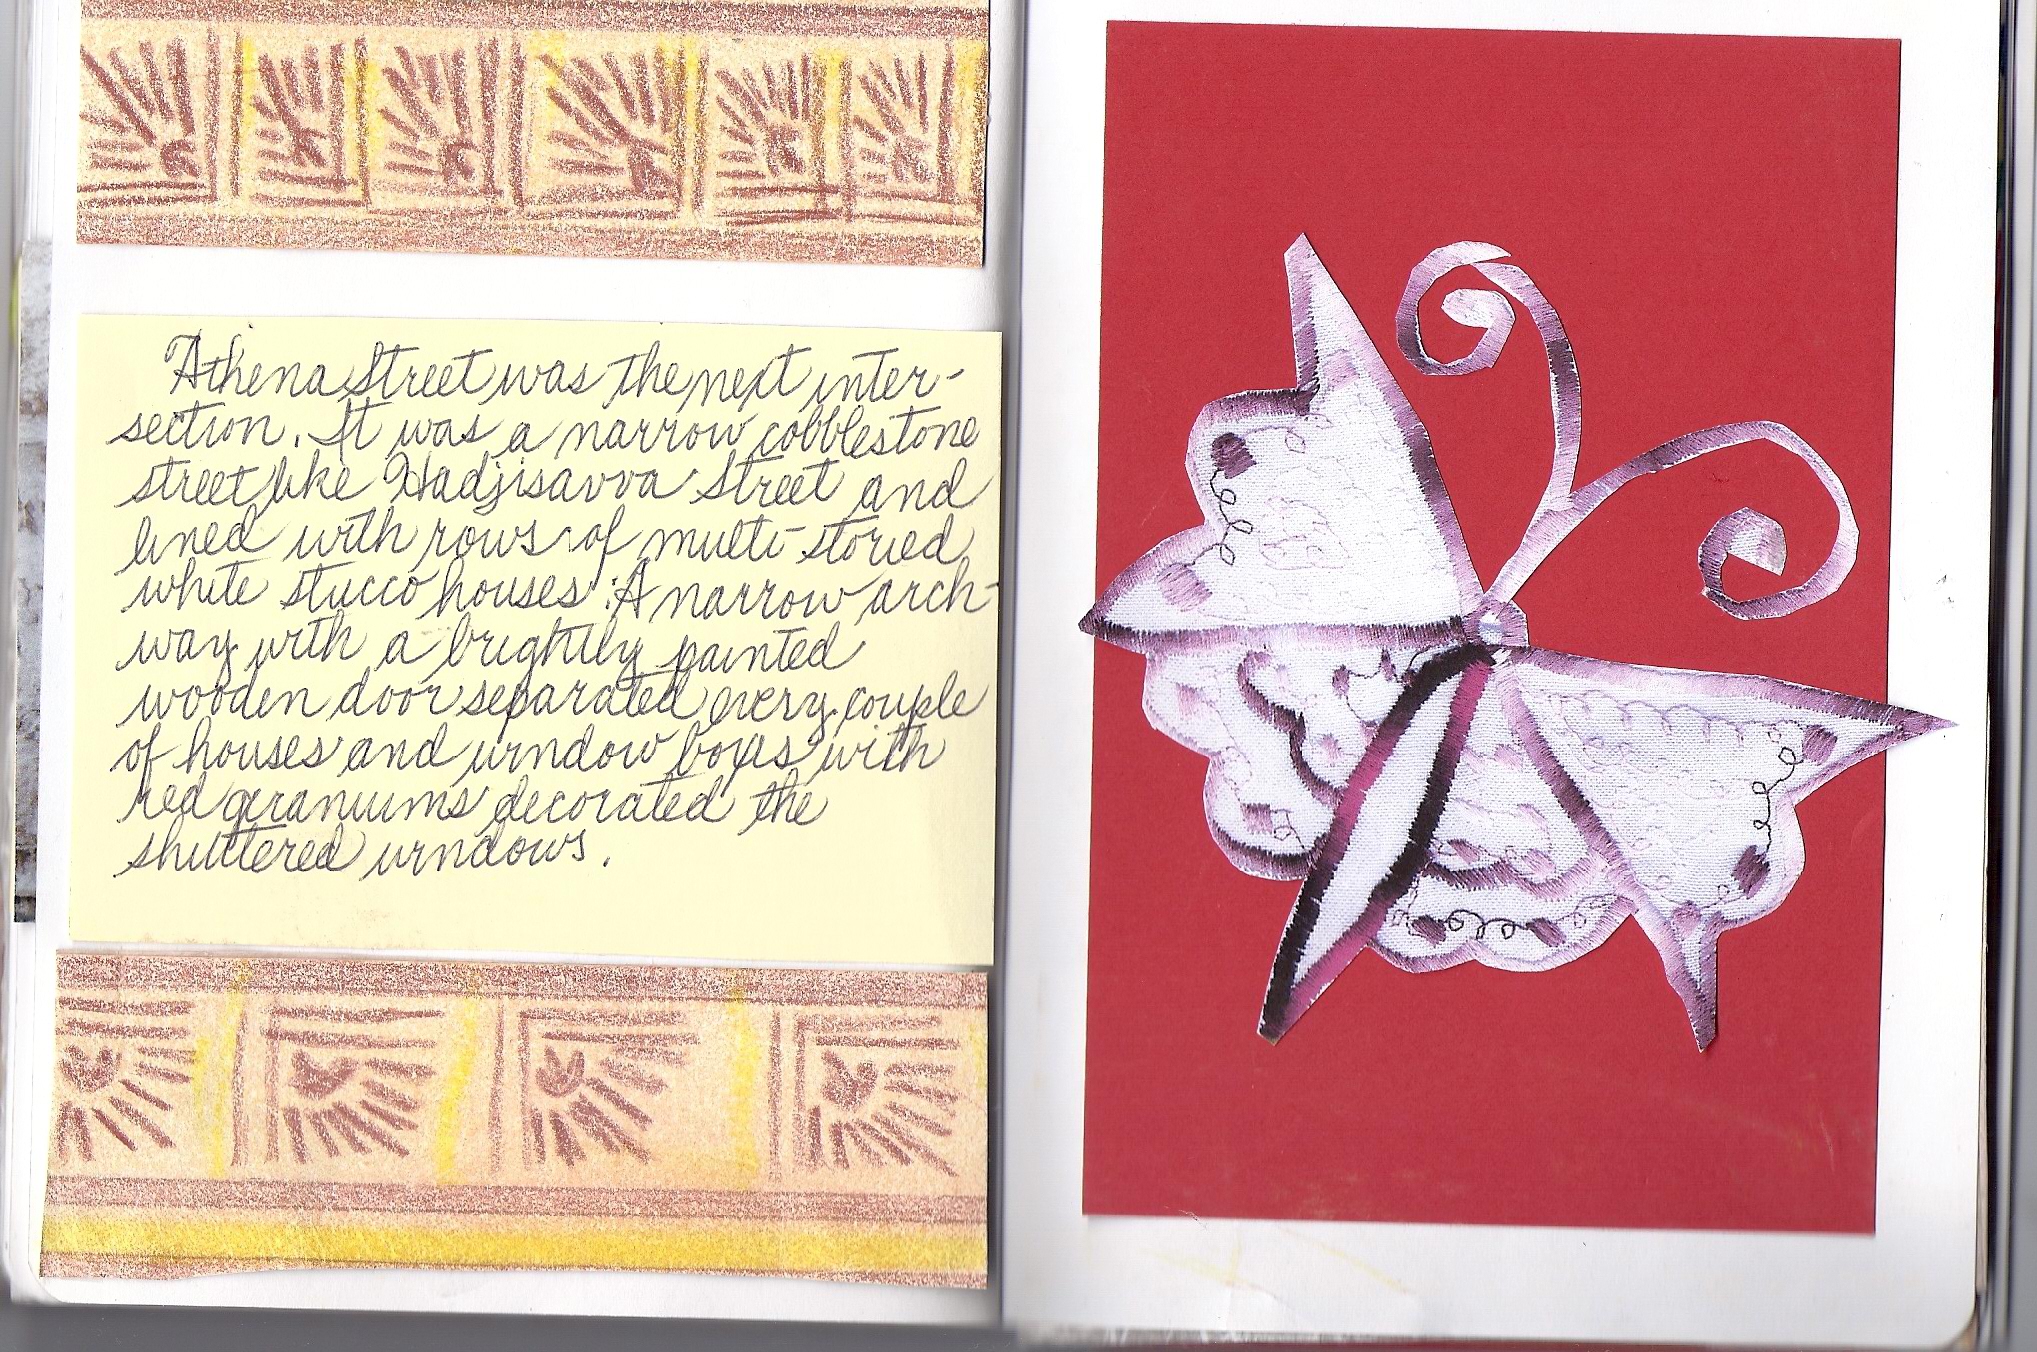 Athena Street was the next inter-
section. It was a narrow cobblestone
street like Hadjisavva Street and
lined with rows of multi-storied
white stucco houses. A narrow arch-
way with a brightly painted
wooden door separated every couple
of houses and window boxes with
red geraniums decorated the
shuttered windows.